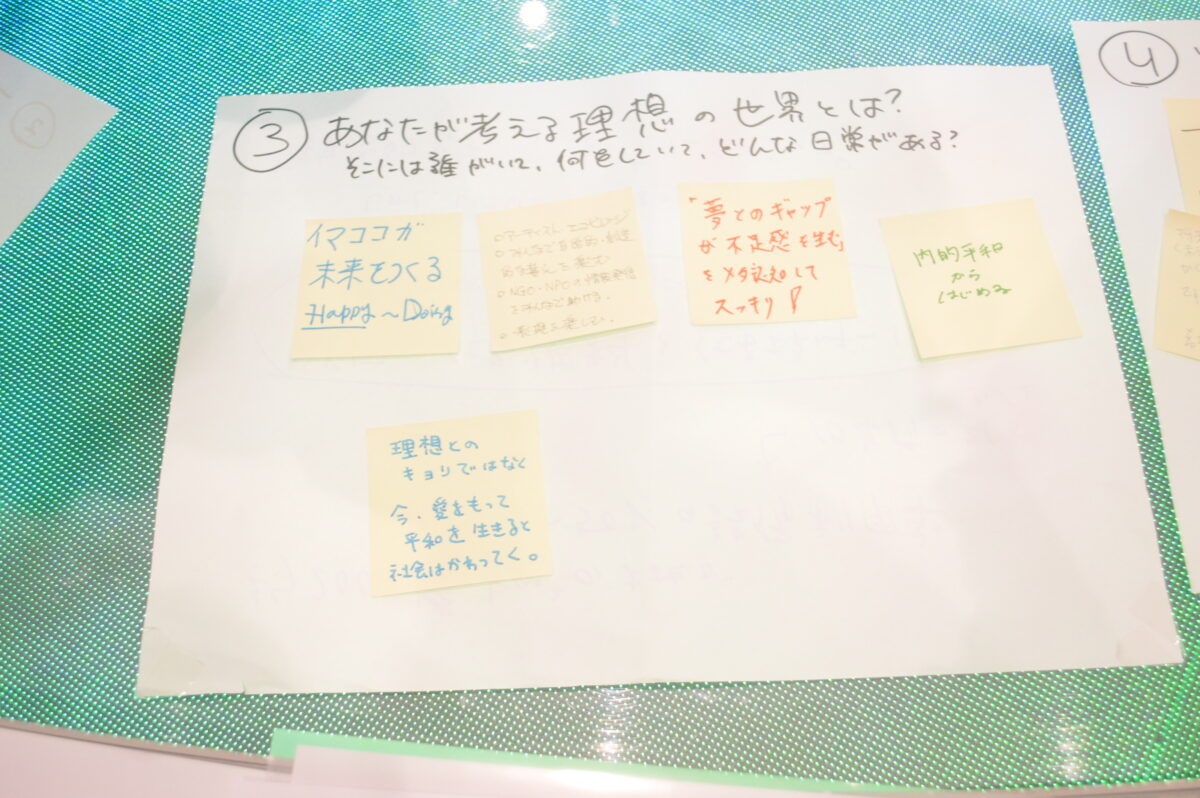 ③ あなたが考える理想の世界とは?
そこには誰がいて、何をしていて、どんな日常がある?
イマココガ
未来をつくる
Happy～Doing
○アーティスト・エコビレッジ
○みんなで自由的・創造
的な暮らしを楽しむ
○NGO・NPOの情報発信
をみんなで助ける。
「夢とのギャップ
が不足感を生む」
をメタ認知して
スッキリ!
内的平和
から
はじめる
理想との
キョリではなく
今、愛をもって
平和を生きると
社会はかわってく。
④